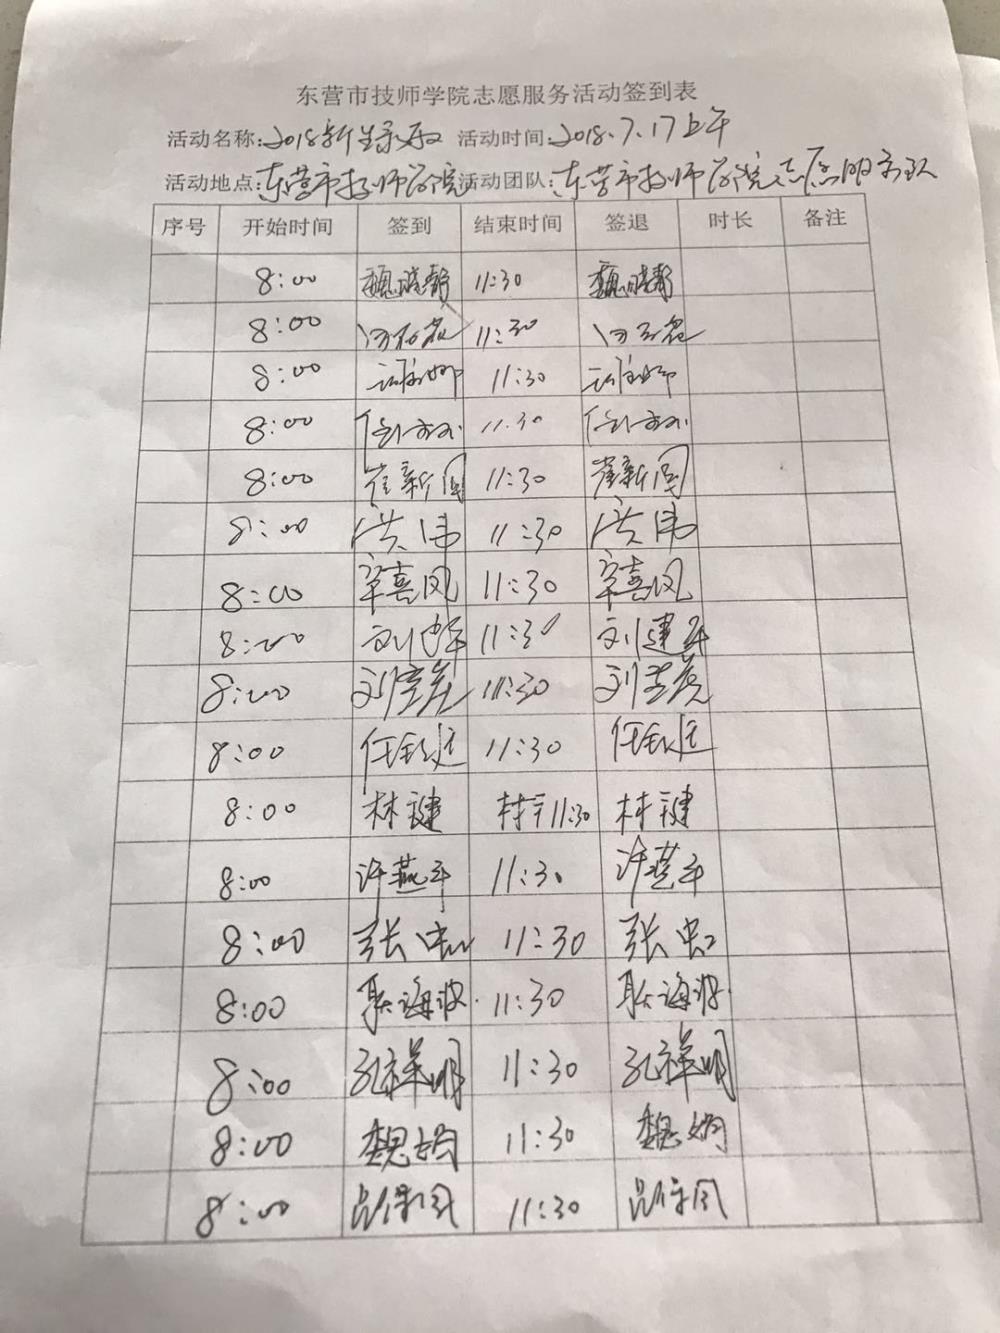 东营市技师学院志愿服务活动签到表
活动名称:2018新生录取 活动时间:2018.7.17上午
活动地点:东营市技师学院 活动团队:东营市技师学院志愿服务队
序号 开始时间 签到 结束时间 签退 时长 备注
8:00 魏晓静 11:30 魏晓静
8:00 11:30
8:00 11:30
8:00 11:30
8:00 崔新国 11:30 崔新国
8:00 洪伟 11:30 洪伟
8:00 宰喜凤 11:30 宰喜凤
8:00 刘建军 11:30 刘建军
8:00 11:30
8:00 11:30
8:00 林键 11:30 林键
8:00 许燕平 11:30 许燕平
8:00 张虹 11:30 张虹
8:00 耿海波 11:30 耿海波
8:00 孔祥明 11:30 孔祥明
8:00 魏娟 11:30 魏娟
8:00 吕保国 11:30 吕保国